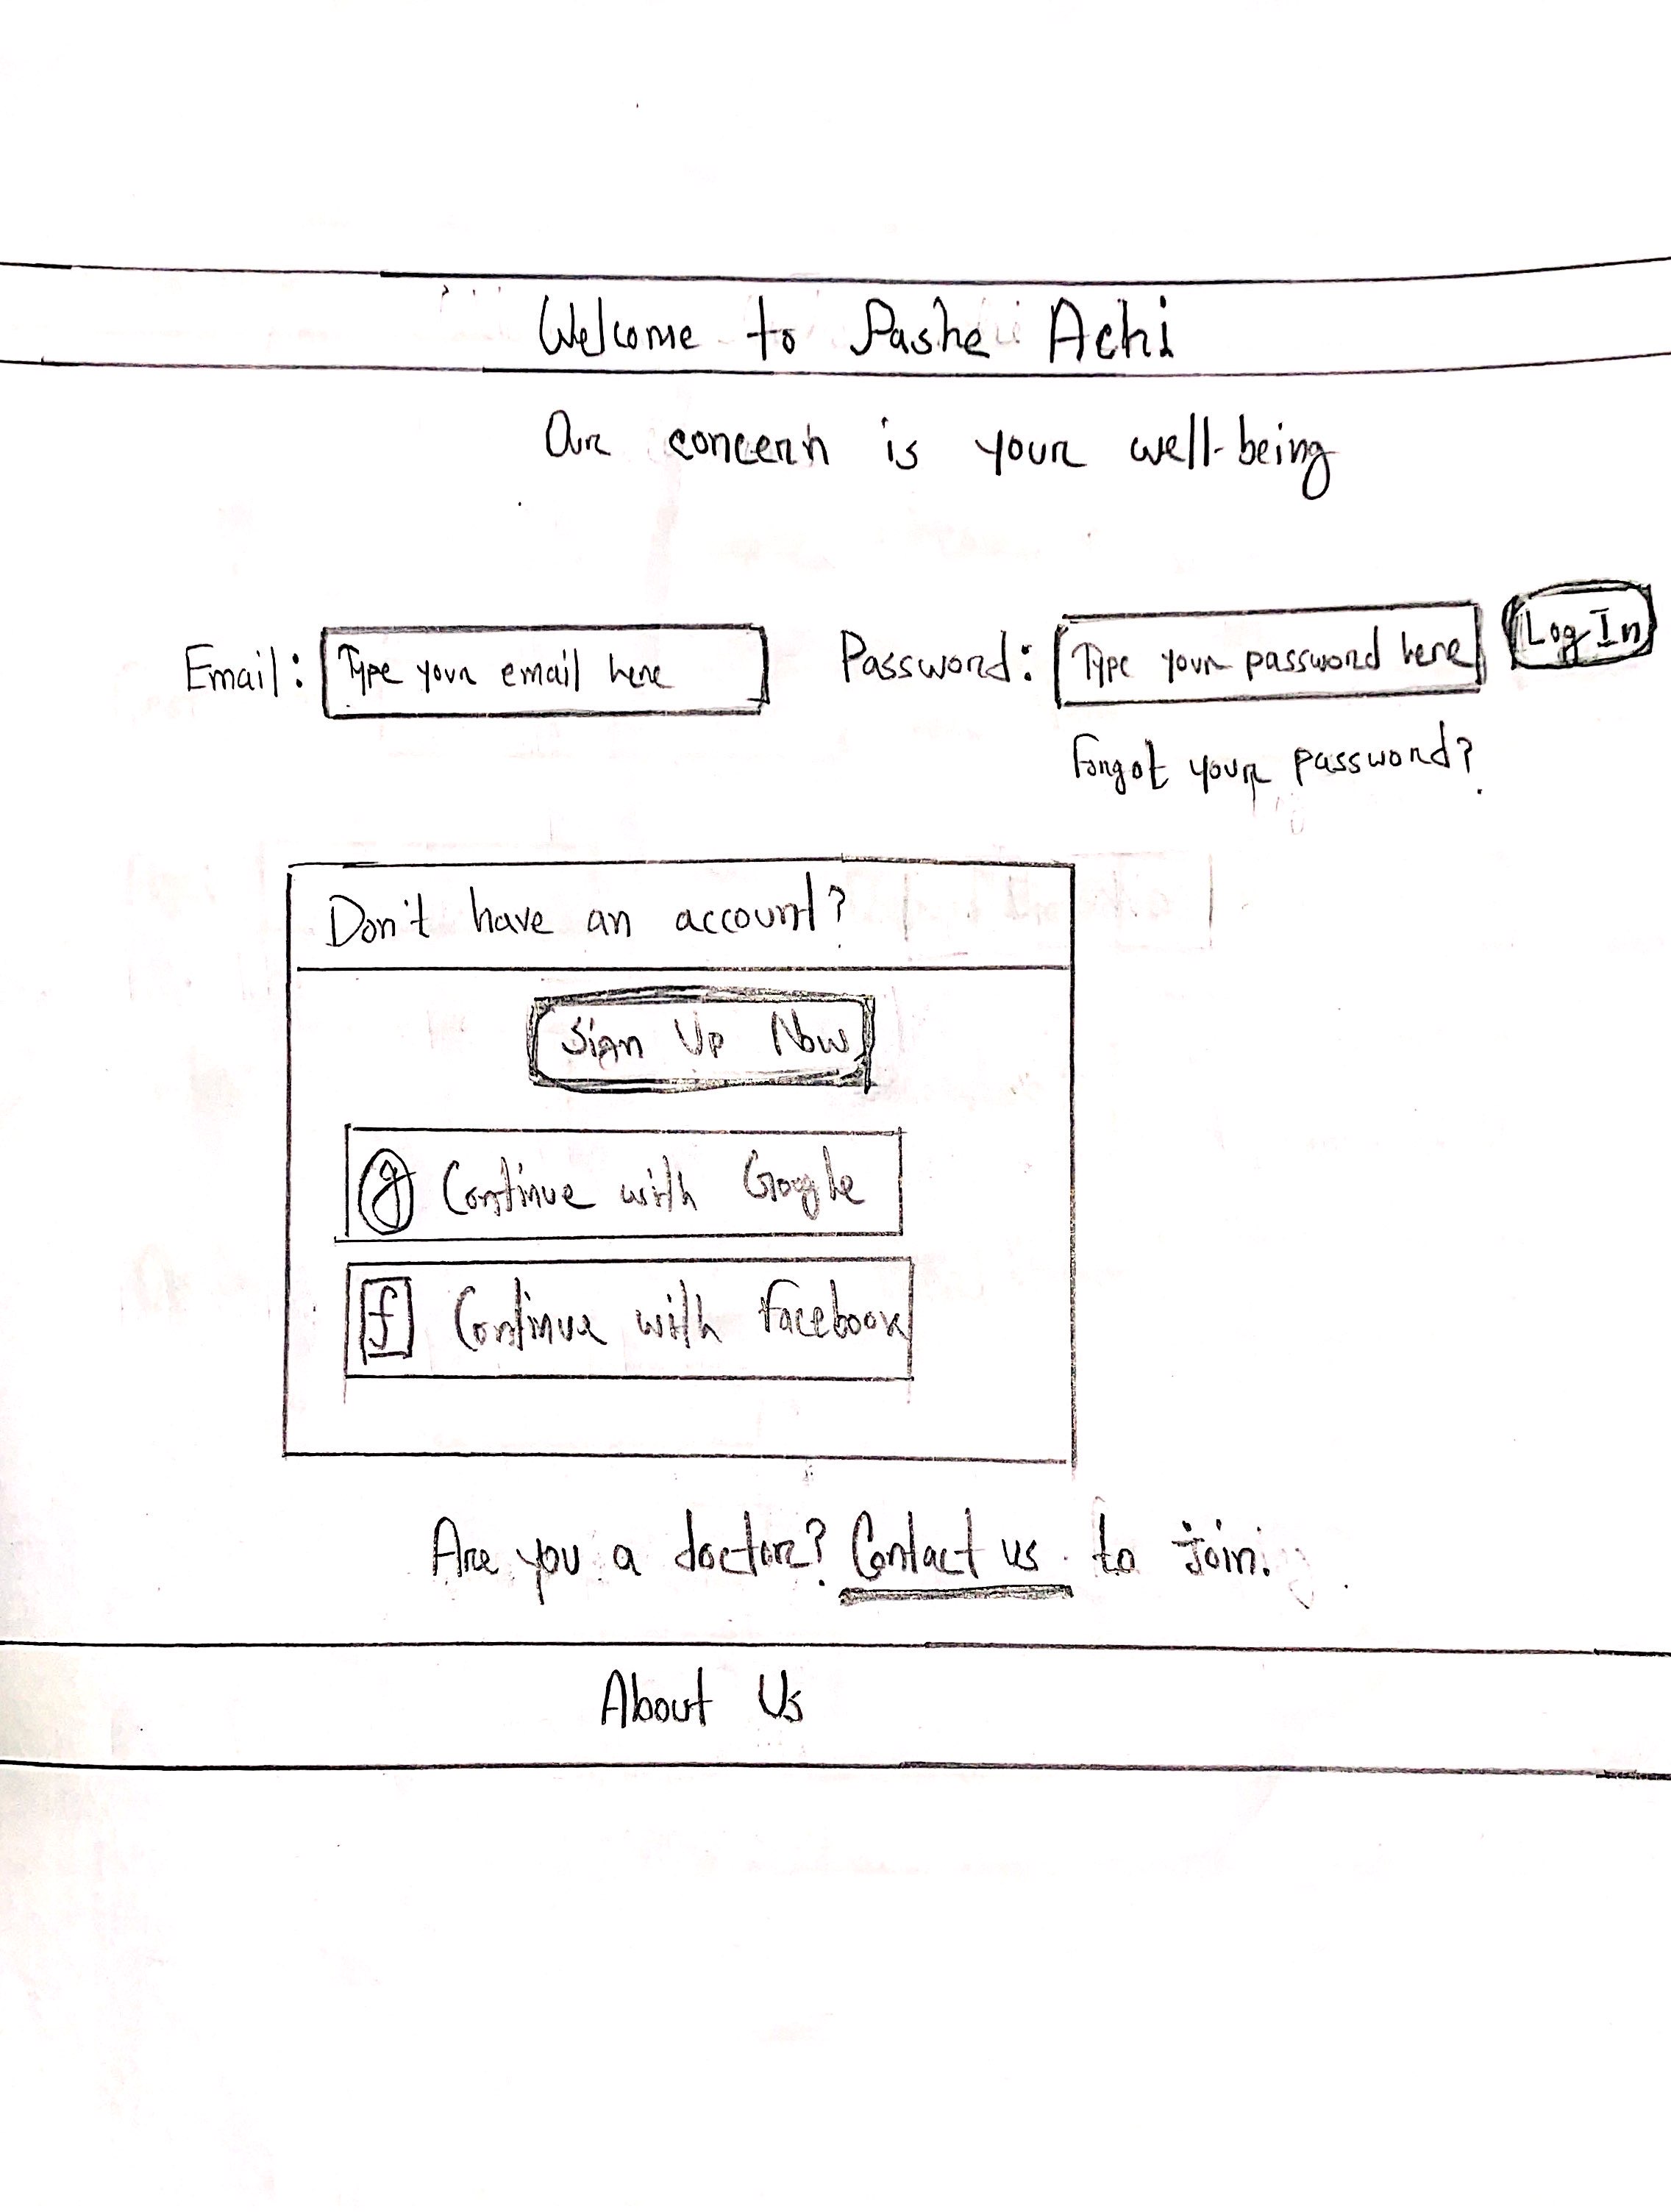 Welcome to Pashe Achi
Our concern is your well-being
Email: Type your email here Password: Type your password here Log In
Forgot your password?
Don't have an account?
Sign Up Now
g Continue with Google
f Continue with Facebook
Are you a doctor? Contact us to join.
About Us